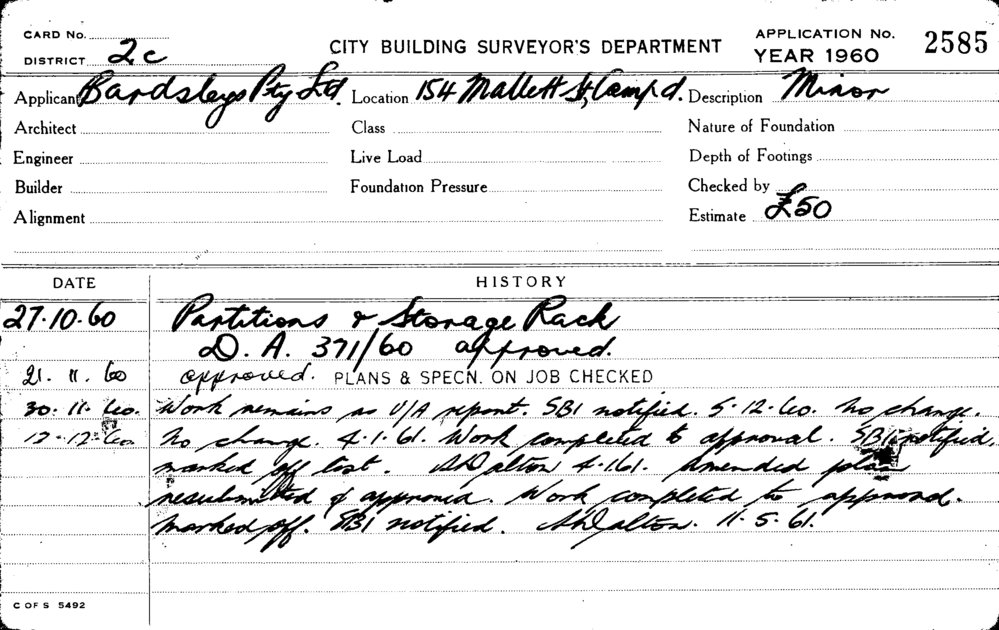 CARD No.
DISTRICT 2c
CITY BUILDING SURVEYOR'S DEPARTMENT
APPLICATION No.
YEAR 1960
2585
Applicant Bardsleys Pty Ltd. Location 154 Mallett St, Camp'd. Description Minor
Architect Class Nature of Foundation
Engineer Live Load Depth of Footings
Builder Foundation Pressure Checked by
Alignment Estimate £50
DATE HISTORY
27.10.60 Partitions & Storage Rack
D.A. 371/60 approved.
21.11.60 approved. PLANS & SPECN. ON JOB CHECKED
30.11.60. Work remains as U/A report. SBI notified. 5.12.60. No change.
12.12.60. No change. 4.1.61. Work completed to approval. SBI notified,
marked off list. Dalton 4.1.61. Amended plan
resubmitted & approved. Work completed to approval.
Marked off. SBI notified. Dalton. 11.5.61.
C OF S 5492